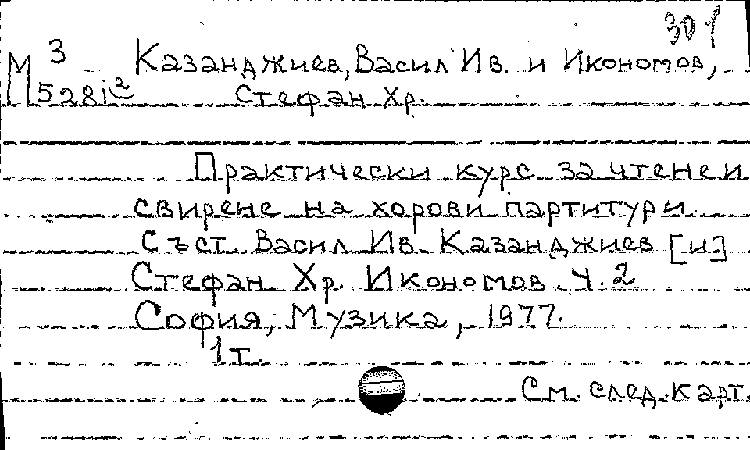 301
М 3 Казанджиев, Васил Ив. и Икономов,
5281² Стефан Хр.
Практически курс за чтене и
свирене на хорови партитури.
Съст. Васил Ив. Казанджиев [и]
Стефан Хр. Икономов. Ч. 2
София, Музика, 1977.
1 т.
См. след. карт.